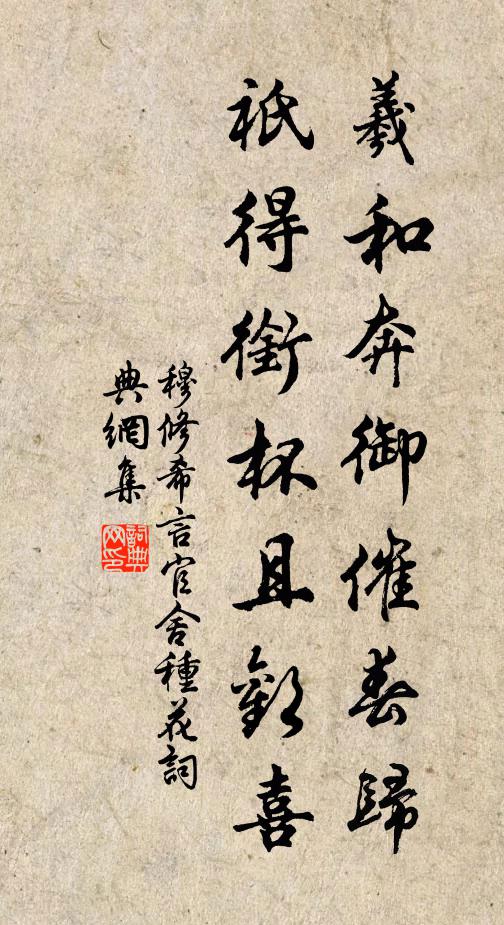 羲和奔御催春歸
祇得銜杯且歡喜
穆修希言官舍種花詞
典網集
詞典网印